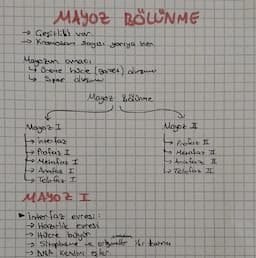 MAYOZ BÖLÜNME
→ Çeşitlilik var
→ Kromozom sayısı yarıya iner
Mayozun amacı
↳ üreme hücre (gamet) oluşumu
↳ Spor oluşumu
Mayoz Bölünme
Mayoz I
↳ interfaz
↳ Profaz I
↳ Metafaz I
↳ Anafaz I
↳ Telofaz I
Mayoz II
↳ Profaz II
↳ Metafaz II
↳ Anafaz II
↳ Telofaz II
MAYOZ I
► interfaz evresi:
→ Hazırlık evresi
→ Hücre büyür
→ Sitoplazma ve organeller iki katına
→ DNA kendini eşler